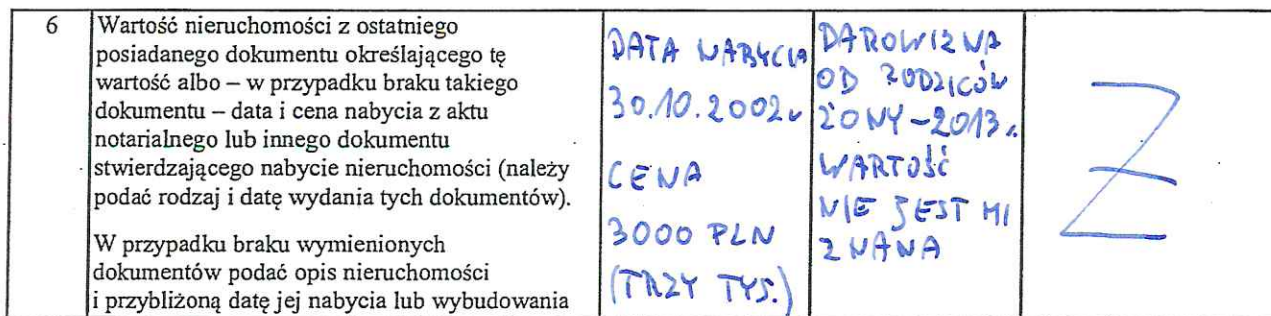 6
Wartość nieruchomości z ostatniego
posiadanego dokumentu określającego tę
wartość albo – w przypadku braku takiego
dokumentu – data i cena nabycia z aktu
notarialnego lub innego dokumentu
stwierdzającego nabycie nieruchomości (należy
podać rodzaj i datę wydania tych dokumentów).
W przypadku braku wymienionych
dokumentów podać opis nieruchomości
i przybliżoną datę jej nabycia lub wybudowania
DATA NABYCIA
30.10.2002r
CENA
3000 PLN
(TRZY TYS.)
DAROWIZNA
OD RODZICÓW
ŻONY - 2013r.
WARTOŚĆ
NIE JEST MI
ZNANA
Z